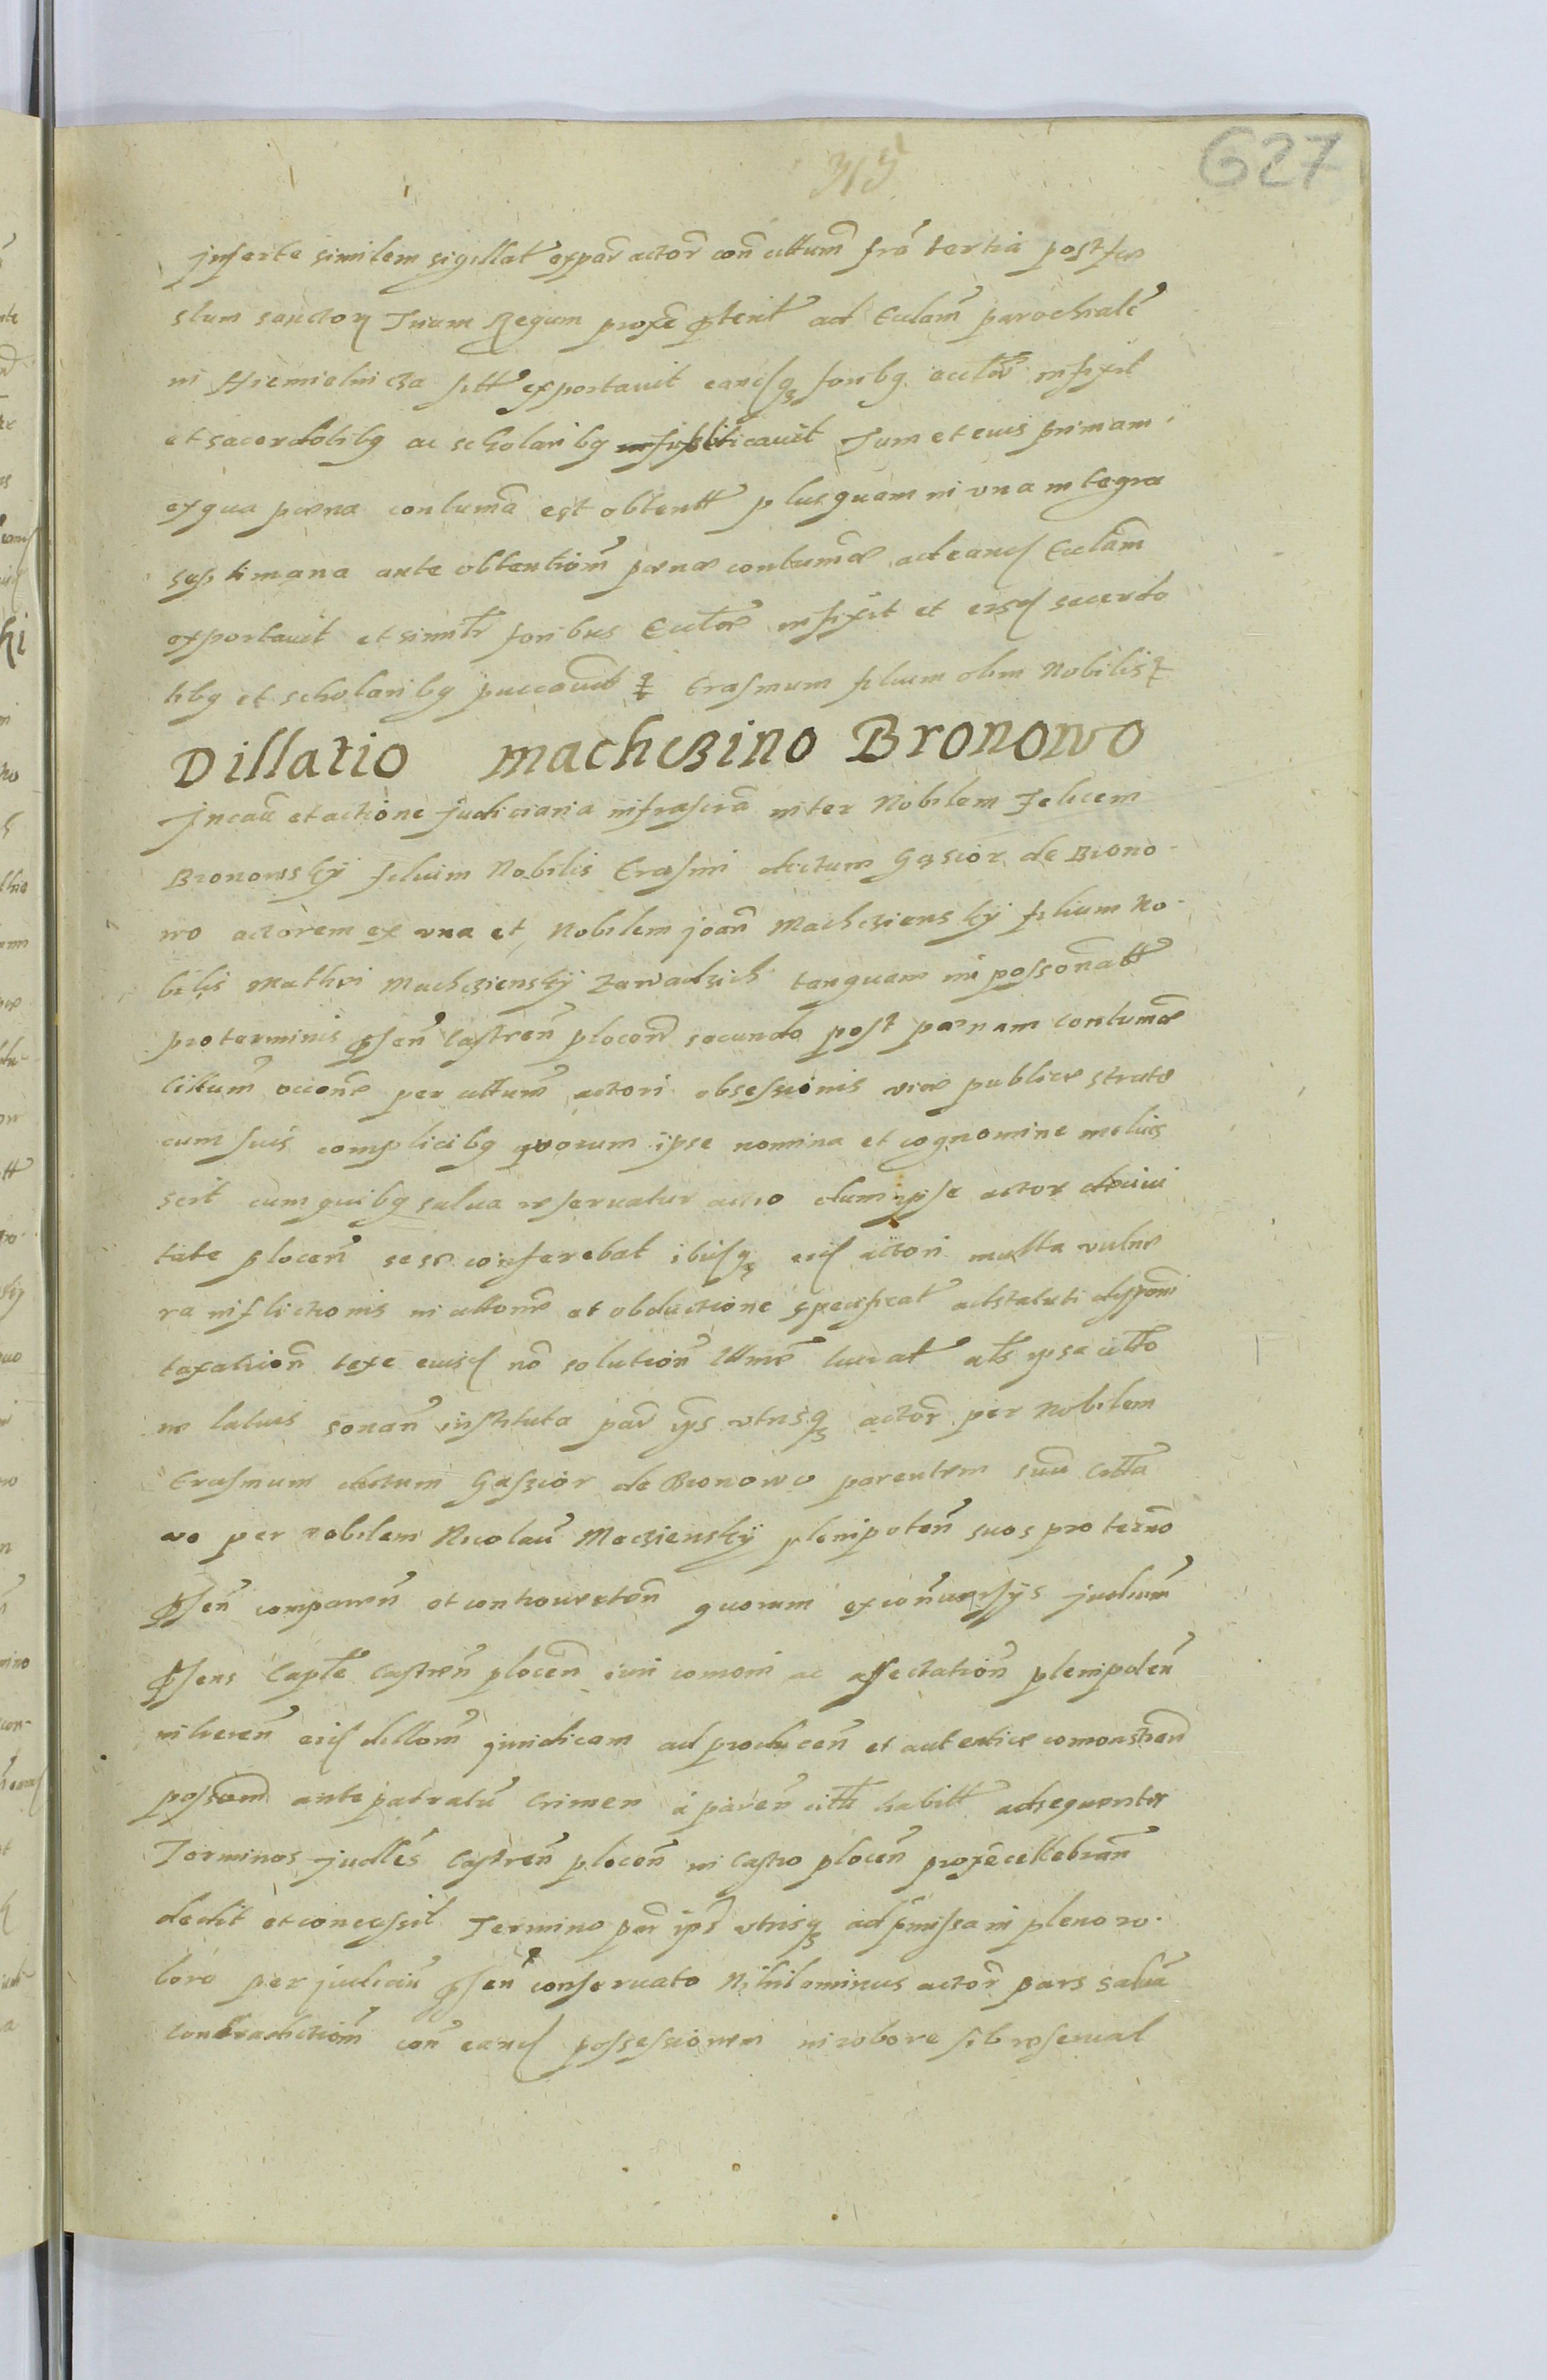 627
319
Inserte similem sigillat ex par actor con cittum fra tertia post fe
stum sanctor Trium Regum proxe pterit ad Eccłam parochialē
in Niemielnicza sitt exportauit eandq foribq eccłae infixit
et sacerdotibq ac scholaribq publicauit Tum et eius primam
ex qua poena contuma est obtentt plusquam in vna integra
septimana ante obtention poenae contumae ad eand Eccłam
exportauit et similr foribus Eccłae infixit et eisd sacerdo
tibq et scholaribq puccauit Erasmum filium olim Nobilis
Dillatio machczino Bronowo
In cau et actione Judiciaria infrascra inter Nobilem Felicem
Bronowsky filium Nobilis Erasmi dictum Gąsior de Brono-
wo actorem ex vna et Nobilem joan Machcziensky filium No-
bilis Mathei Machczienskÿ Zawadzich tanquam in possonatt
pro terminis pnsen Castren plocen secundo post poenam contumae
cittum occione per cittum actori obsessionis viae publicae stratae
cum suis complicibq quorum ipse nomina et cognomine melius
scit cum quibq salua reseruatur actio dum ipse actor de ciui
tate plocen sese conferebat ibidq eid actori multa vulne
ra inflictionis in cittone et obductione specificat ad statuti disponi
taxation texe eiusd no solution ltime lucrat ats ipsa citto
ne latius sonan instituta par ips vtrisq actor per Nobilem
Erasmum dictum Gaszior de Bronowo parentem suu citta
vo per nobilem Nicolau Macziensky plenipoten suos pro termo
pnsen comparen et controuerten quorum ex conuersÿs judicium
pnsens Capte Castren plocen iuri comoni ac affectation plenipoten
inheren eid dillom juridicam ad producen et autentice comonstrand
posscom ante patratu crimen a paren citti habitt ad sequenter
Terminos judles Castren plocen in Castro plocen proxe cellebran
dedit et concessit Termino par ips vtrisq ad pmissa in pleno ro-
bore per judiciu pnsen conseruato Nihilominus actor pars salua
contradiction con eand possessionem in robore sib reseruat